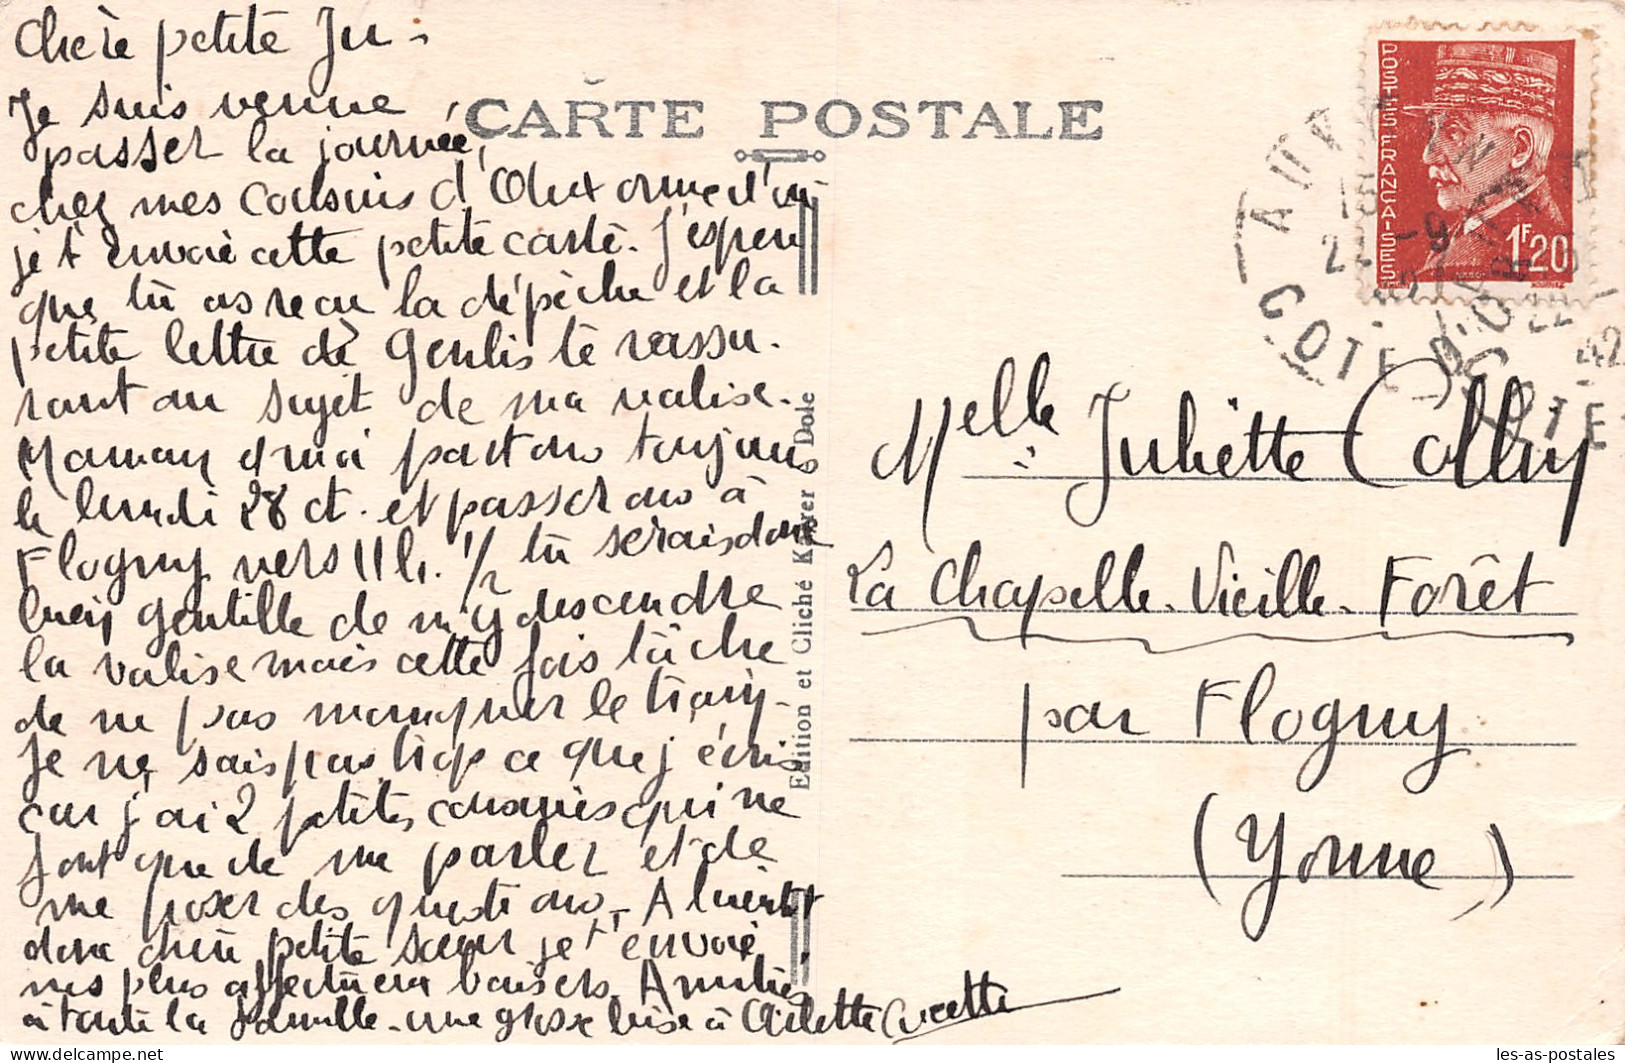 Chère petite Ju -
Je suis venue
passer la journée,
chez mes cousins d'Auxonne d'où
je t'envoie cette petite carte. J'espère
que tu as reçu la dépêche et la
petite lettre de Genlis te rassu-
rant au sujet de ma valise.
Maman et moi partons toujours
le lundi 28 ct. et passerons à
Flogny vers 11h. 1/2 tu serais donc
bien gentille de m'y descendre
la valise mais cette fois tâche
de ne pas manquer le train.
Je ne sais pas trop ce que j'écris
car j'ai 2 petites cousines qui ne
font que de me parler et de
me poser des questions. A bientôt
donc chère petite sœur je t'envoie
mes plus affectueux baisers. Amitiés
à toute la famille - une grosse bise à Arlette Lucette
CARTE POSTALE
Edition et Cliché Karrer Dole
POSTES FRANÇAISES
1F20
AUXONNE
15
22 -9
42
COTE D'OR
Melle Juliette Collin
La Chapelle-Vieille-Forêt
par Flogny
(Yonne)
les-as-postales